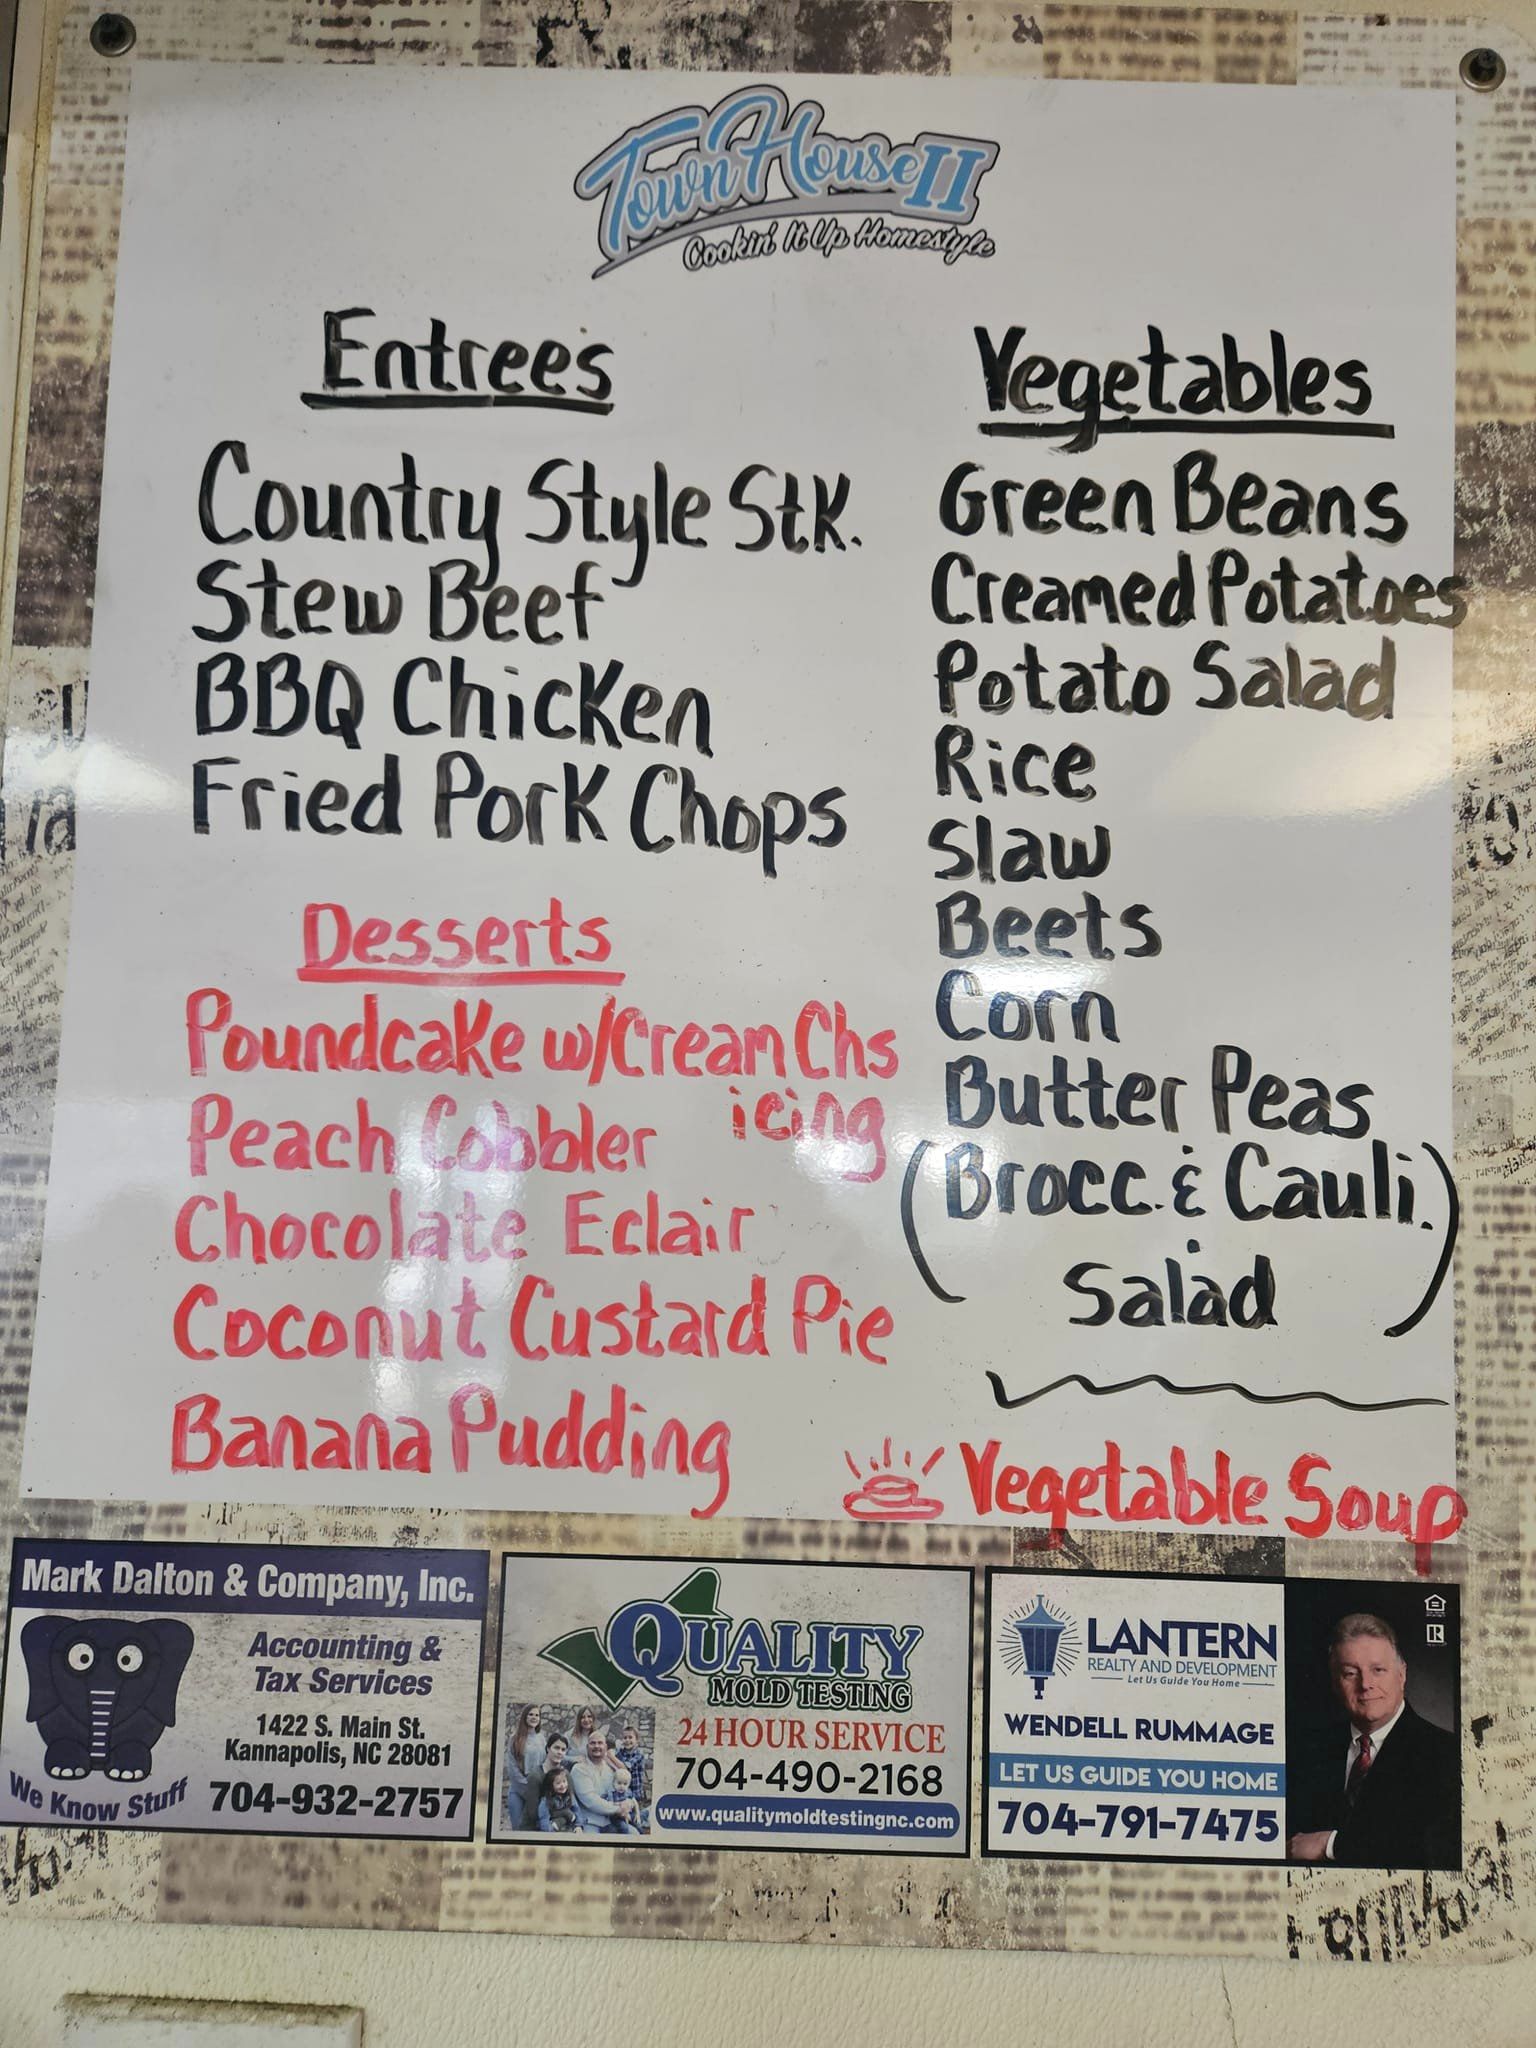 Town House II
Cookin' It Up Homestyle
Entrees
Country Style Stk.
Stew Beef
BBQ Chicken
Fried Pork Chops
Desserts
Poundcake w/Cream Chs
icing
Peach Cobbler
Chocolate Eclair
Coconut Custard Pie
Banana Pudding
Vegetables
Green Beans
Creamed Potatoes
Potato Salad
Rice
Slaw
Beets
Corn
Butter Peas
(Brocc. & Cauli.)
Salad
Vegetable Soup
Mark Dalton & Company, Inc.
Accounting &
Tax Services
1422 S. Main St.
Kannapolis, NC 28081
We Know Stuff
704-932-2757
QUALITY
MOLD TESTING
24 HOUR SERVICE
704-490-2168
www.qualitymoldtestingnc.com
LANTERN
REALTY AND DEVELOPMENT
Let Us Guide You Home
WENDELL RUMMAGE
LET US GUIDE YOU HOME
704-791-7475